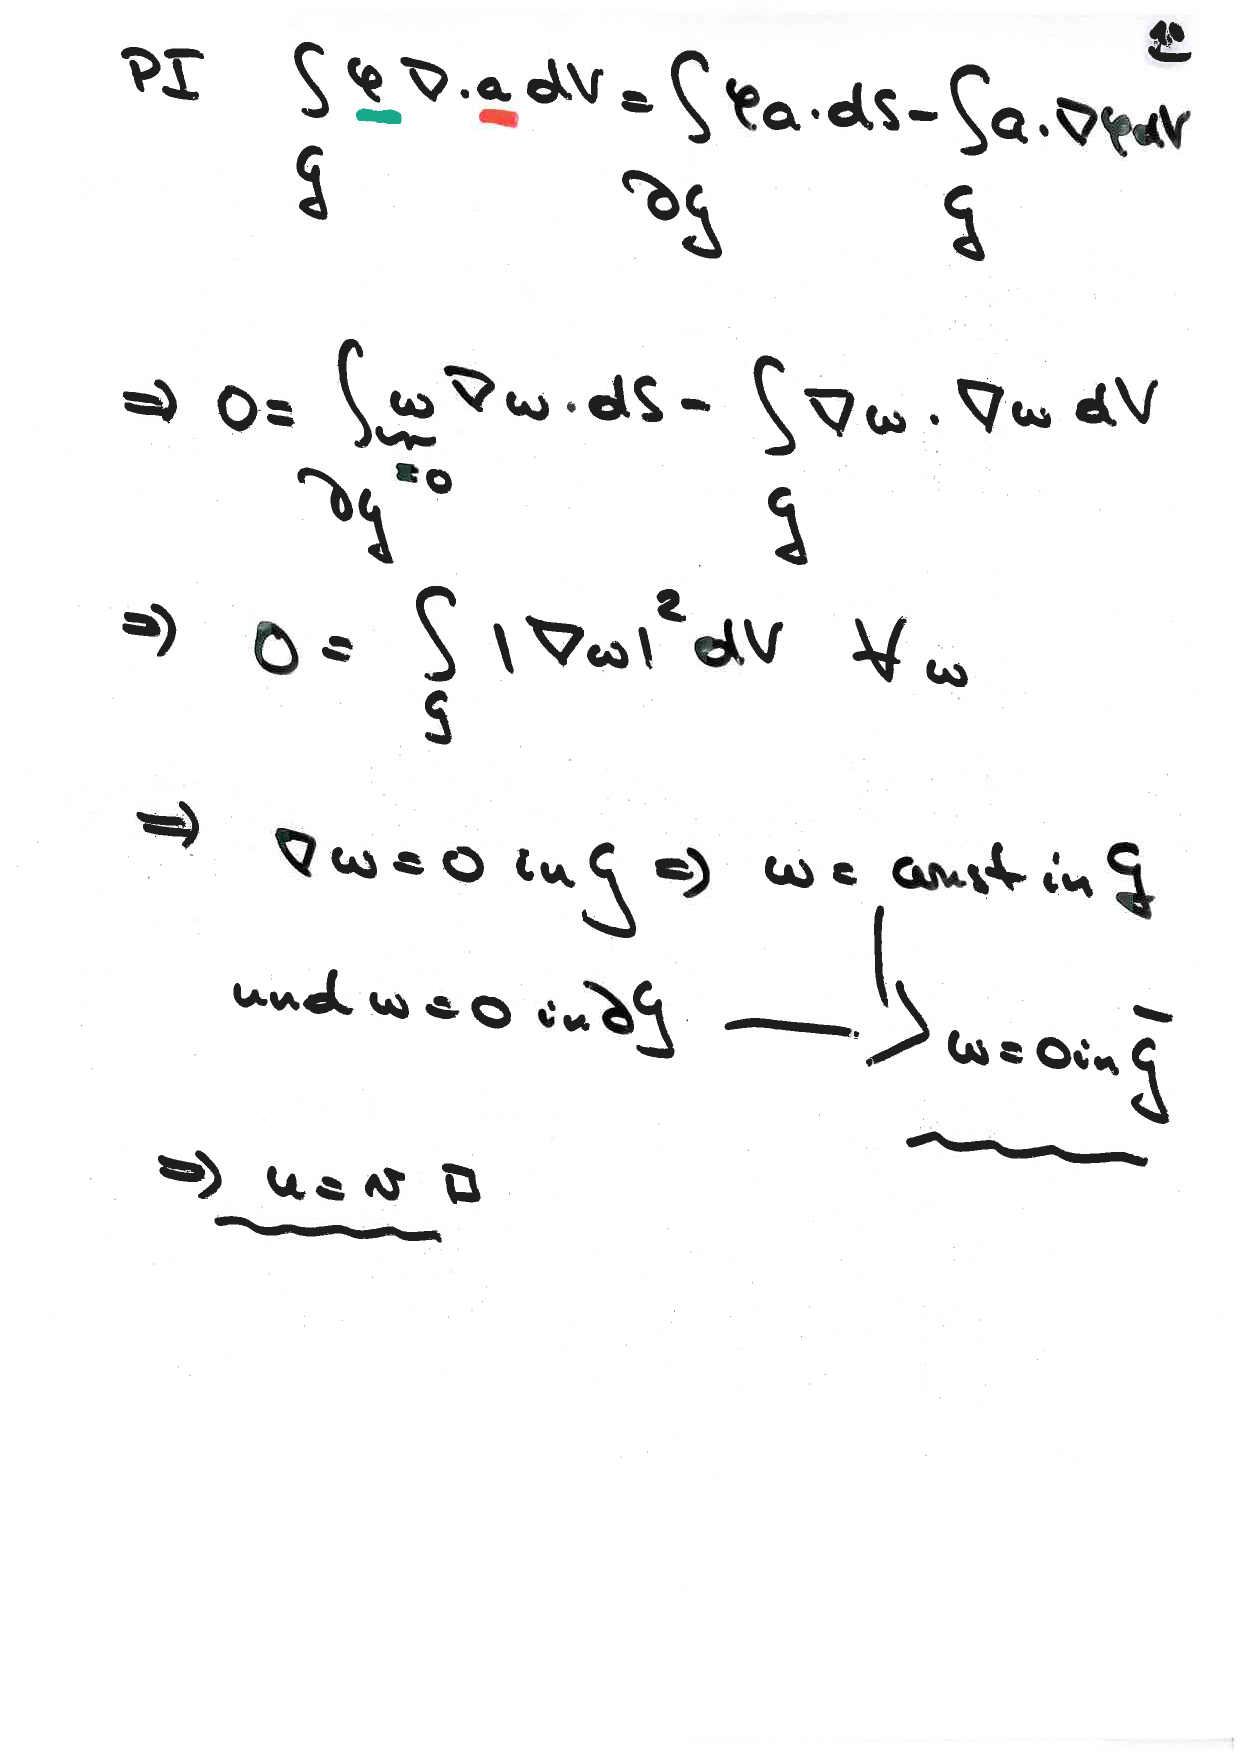 10
PI ∫_G φ ∇·a dV = ∫_∂G φ a·dS - ∫_G a·∇φ dV
⇒ 0 = ∫_∂G ω ∇ω·dS - ∫_G ∇ω·∇ω dV
= 0
⇒ 0 = ∫_G |∇ω|² dV ∀ ω
⇒ ∇ω = 0 in G ⇒ ω = const in G
und ω = 0 in ∂G → ω = 0 in G̅
⇒ u = v □